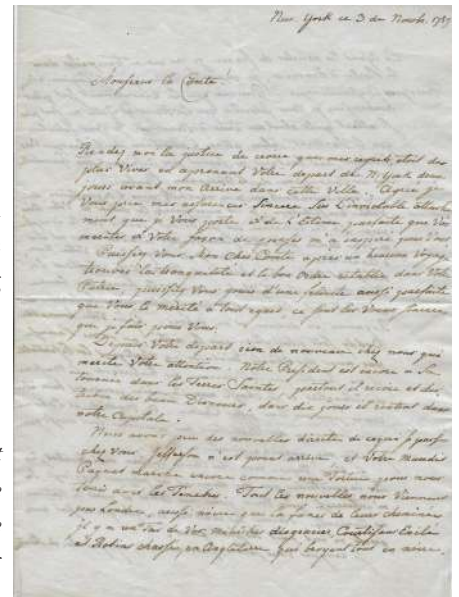 New. York ce 3 de Novb. 1789
Monsieur le Comte!
Rendez moi la justice de croire que mes regrets étoit des
plus Vives en aprenant Votre depart de N. York deux
jours avant mon Arrivé dans cette Ville. Agréé je
Vous prie mes assurances Sincere Sur L'inviolable attache
ment que je Vous porte et de L'Estime parfaite que Vos
merites et Votre façon de penser m'a inspiré pour Vous
Puissiez Vous Mon Cher Comte après un heureux Voyage
trouver la tranquilité et le bon Ordre retablie dans Votre
Patrie, puissiez Vous jouir d'une felicité aussi parfaite
que Vous le merité a tout egard, ce sont les Voeux Sincere
que je fais pour Vous.
Depuis Votre depart rien de nouveau chez nous qui
merite Votre attention. Notre President est encore a Sa
tournée dans les Terres Saintes, partout il recoit et dis
tribue des beaux Discours, dans dix jours il rentrent dans
notre Capitale.
Nous avons peu des nouvelles directe de ce qui se passe
chez Vous. Jefferson n'est point arrivé et Votre Maudit
Paquet marche encore comme une Voiture pour nous
tenir dans les Tenebres. Tout les nouvelles nous Viennent
par Londres, aussi noire que la fumée de leur cheminées
il y a un tas de Vos ministres disgraciés, Courtisans Exilé
et Robin chassé, en Angleterre, qui broyent tout en noire.